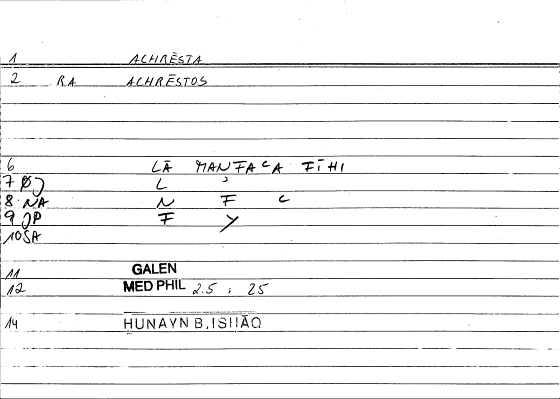 1 ACHRĒSTA
2 RA ACHRĒSTOS
6 LĀ MANFAcA FĪHI
7 ØJ L ʾ
8 NA N F c
9 JP F Y
10 SA
11 GALEN
12 MED PHIL 2.5 ; 25
14 HUNAYN B.ISHĀQ